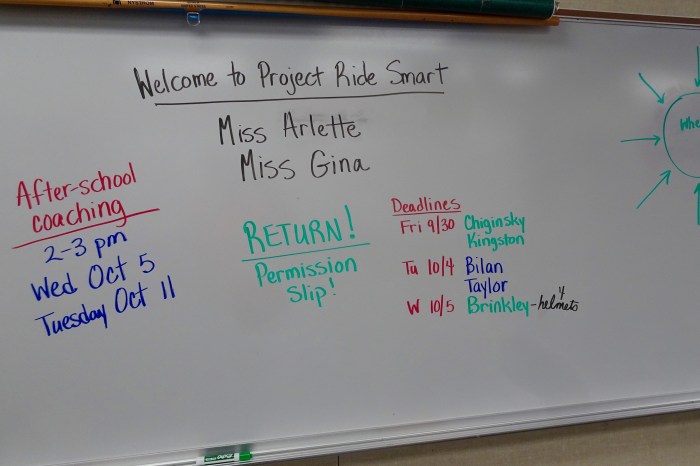 Welcome to Project Ride Smart
Miss Arlette
Miss Gina
After-school
coaching
2-3 pm
Wed Oct 5
Tuesday Oct 11
RETURN!
Permission
Slip!
Deadlines
Fri 9/30 Chiginsky
Kingston
Tu 10/4 Bilan
Taylor
W 10/5 Brinkley-helmets
4